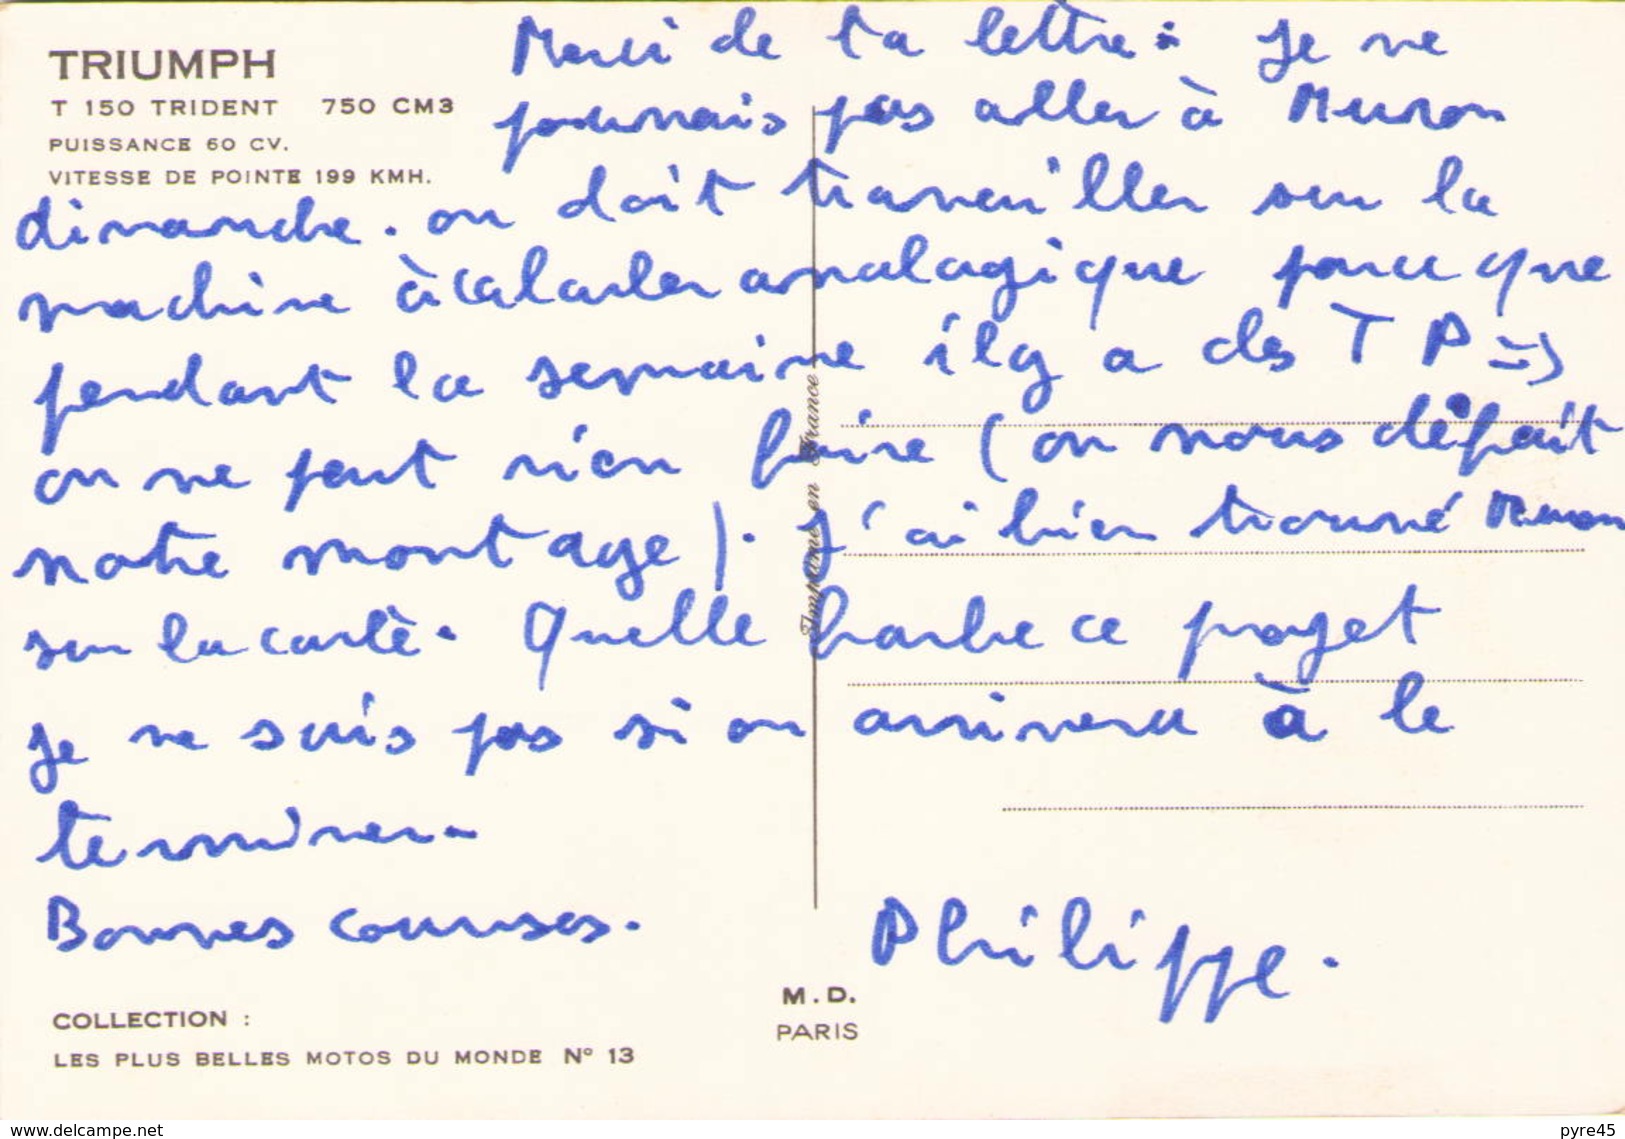 TRIUMPH
T 150 TRIDENT 750 CM3
PUISSANCE 60 CV.
VITESSE DE POINTE 199 KMH.
Merci de ta lettre. je ne
pourrais pas aller à Muron
dimanche. on doit travailler sur la
machine à calculer analogique parce que
pendant la semaine il y a des TP =>
on ne peut rien faire (on nous défait
notre montage). J'ai bien trouvé Muron
sur la carte. Quelle barbe ce projet
je ne sais pas si on arrivera à le
terminer.
Bonnes courses.
Philippe.
Imprimé en France
COLLECTION :
LES PLUS BELLES MOTOS DU MONDE N° 13
M.D.
PARIS
www.delcampe.net
pyre45